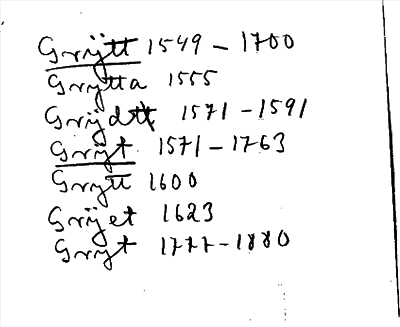 Grijtt 1549 - 1700
Grijtta 1555
Grijdtt 1571 - 1591
Grijt 1571 - 1763
Grijtt 1600
Grijet 1623
Grijt 1777 - 1880